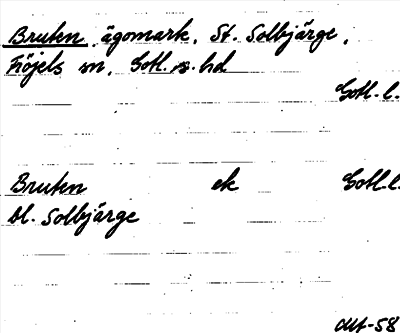 Bruten, ägomark, St. Solbjärge,
Fröjels sn, Gotl. s. hd
Gotl. l.
Bruten ek Gotl. l.
bl. Solbjärge
-58